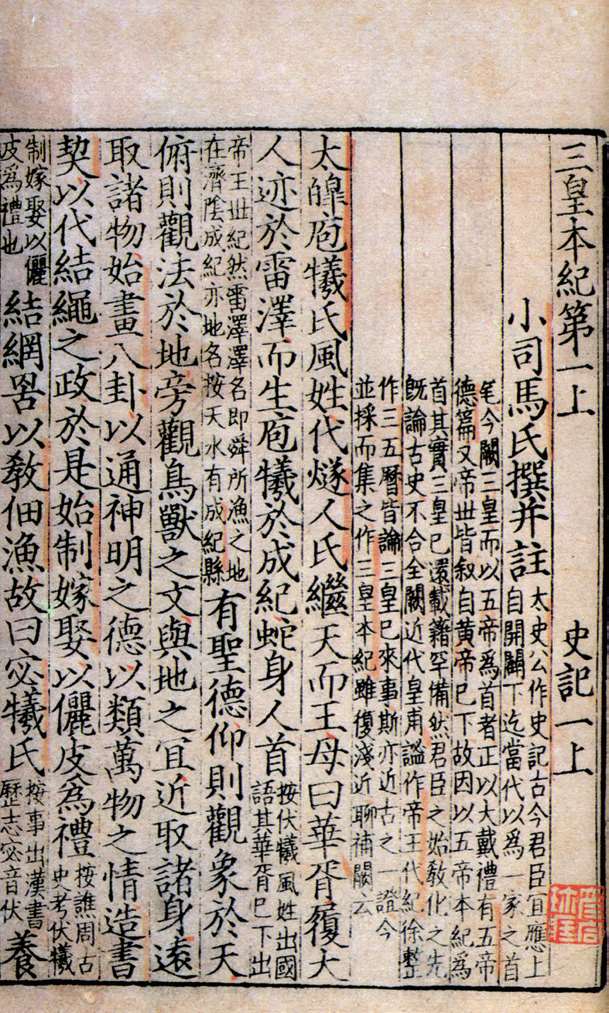 三皇本紀第一上　史記一上
小司馬氏撰并註
太史公作史記古今君臣宜應上
自開闢下迄當代以為一家之首
笔今闕三皇而以五帝為首者正以大戴禮有五帝
德篇又帝世皆叙自黃帝已下故因以五帝本紀為
首其實三皇已還載籍罕備然君臣之始教化之先
既論古史不合全闕近代皇甫謐作帝王代紀徐整
作三五曆皆論三皇已來事斯亦近古之一證今
並採而集之作三皇本紀雖復淺近聊補闕云
太皥庖犧氏風姓代燧人氏繼天而王母曰華胥履大
人迹於雷澤而生庖犧於成紀蛇身人首
按伏犧風姓出國
語其華胥已下出
帝王世紀然雷澤澤名即舜所漁之地
在濟陰成紀亦地名按天水有成紀縣
有聖德仰則觀象於天
俯則觀法於地旁觀鳥獸之文與地之宜近取諸身遠
取諸物始畫八卦以通神明之德以類萬物之情造書
契以代結繩之政於是始制嫁娶以儷皮為禮
按譙周古
史考伏犧
制嫁娶以儷
皮為禮也
結網罟以教佃漁故曰宓犧氏
按事出漢書
歷志宓音伏
養